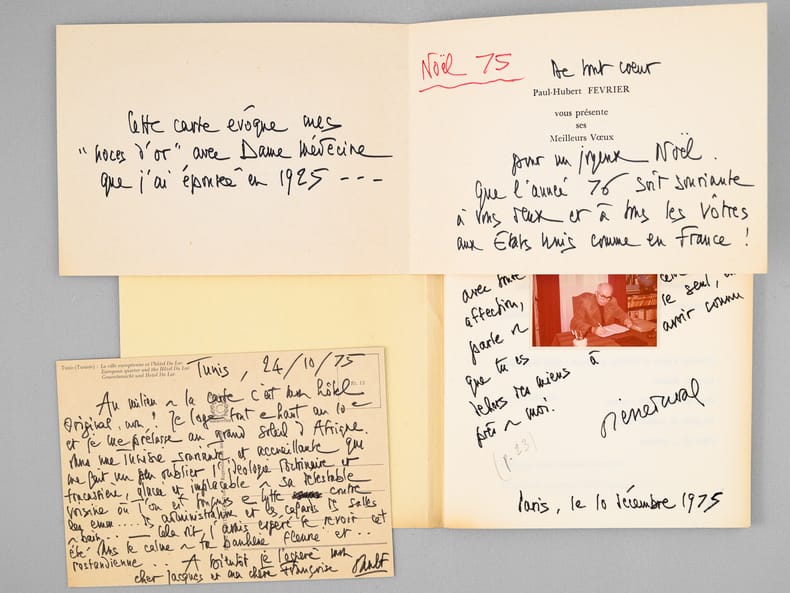 Cette carte évoque mes
"noces d'or" avec Dame Médecine
que j'ai épousée en 1925 ---
Noël 75 De tout coeur
Paul-Hubert FEVRIER
vous présente
ses
Meilleurs Vœux
pour un joyeux Noël.
Que l'année 76 soit souriante
à vous deux et à tous les vôtres
aux Etats Unis comme en France !
avec toute
affection,
parle
que tu es
des miens à
près moi.
le seul,
avoir connu
(p. 23)
Paris, le 10 décembre 1975
Tunis (Tunisie) - La ville européenne et l'hôtel Du Lac
European quarter and the Hôtel Du Lac
Tunis, 24/10/75
Au milieu la carte c'est mon hôtel
Original, non ! Je loge tout en haut au 10e
et je me prélasse au grand soleil d'Afrique.
dans une Tunisie souriante et accueillante que
me fait un peu oublier l'idéologie doctrinaire et
glacée et implacable sa détestable
voisine où l'on est toujours lutte contre
administration et les cafards salles
bain... Cela dit, j'avais espéré te revoir cet
été dans le calme ta banlieue fleurie et ..
rostandienne... A bientôt je l'espère mon
cher Jacques et ma chère Françoise